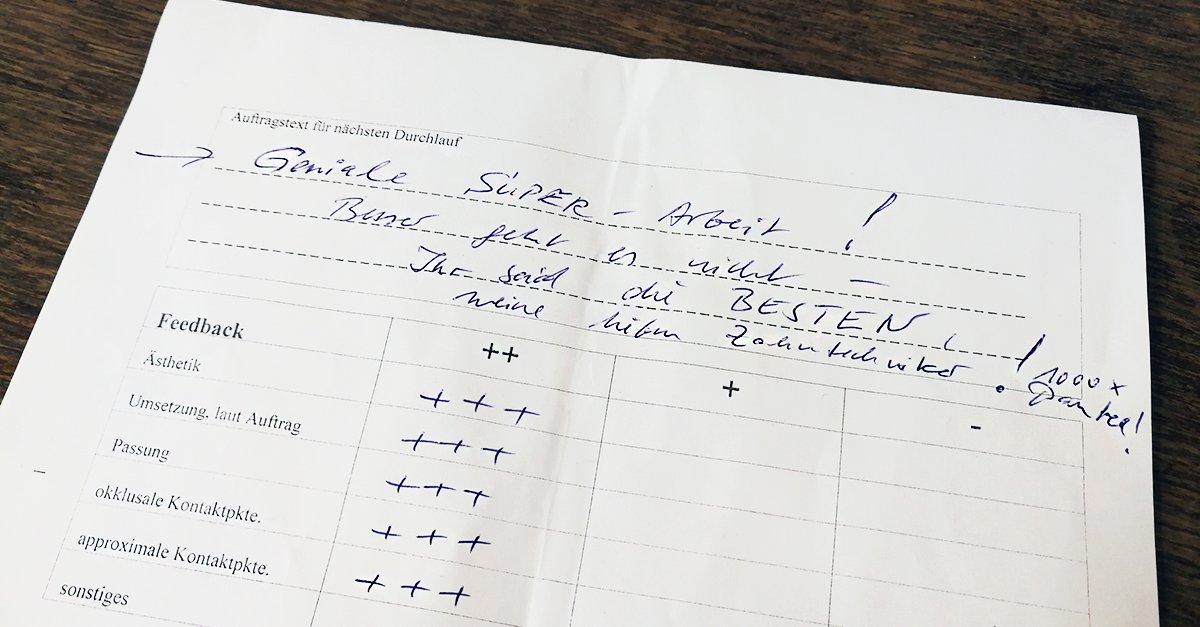 Auftragstext für nächsten Durchlauf
→ Geniale SÜPER - Arbeit !
Besser geht es nicht –
Ihr seid die BESTEN, !
meine lieben Zahntechniker. 1000 x
Danke!
Feedback ++ + -
Ästhetik +++
Umsetzung, laut Auftrag +++
Passung +++
okklusale Kontaktpkte. +++
approximale Kontaktpkte. +++
sonstiges